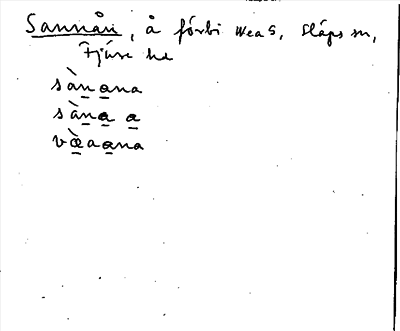 Sannån, å förbi Weas, Släps sn,
Fjäre hd
sàn̲a̲na
sàn̲a̲ a̲
væ̲̀aa̲na